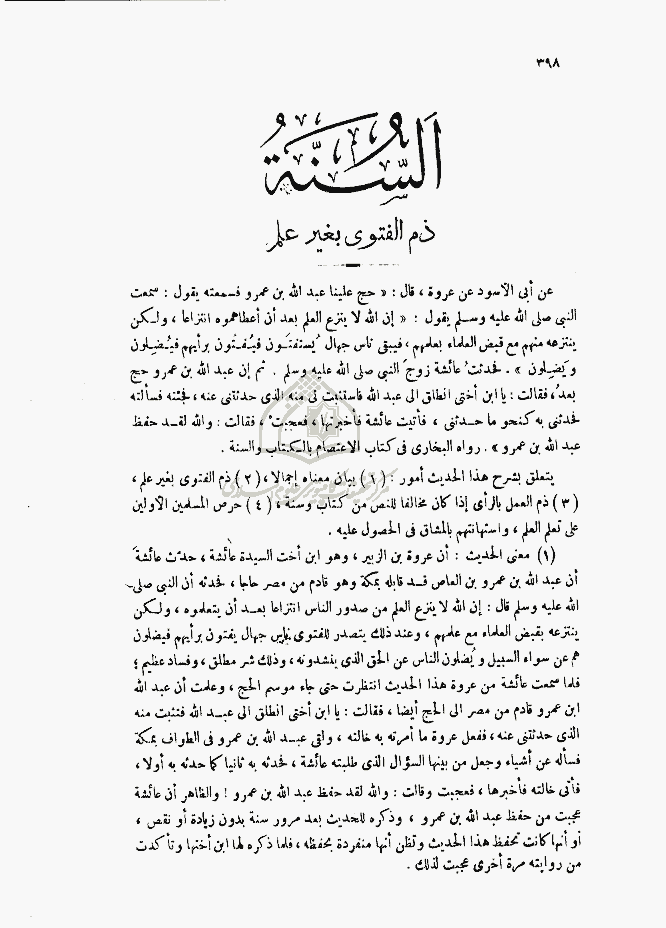 ٣٩٨
السُّنَّةُ
ذم الفتوى بغير علم
عن أبى الأسود عن عروة ، قال : « حج علينا عبد الله بن عمرو فسمعته يقول : سمعت
النبى صلى الله عليه وسلم يقول : « إن الله لا ينزع العلم بعد أن أعطاهموه انتزاعا ، ولكن
ينتزعه منهم مع قبض العلماء بعلمهم ، فيبقى ناس جهال يُستفتَون فيُفتُون برأيهم فيُضلون
ويَضلون » . فحدثت عائشة زوج النبى صلى الله عليه وسلم . ثم إن عبد الله بن عمرو حج
بعدُ ، فقالت : يا ابن أختى انطلق الى عبد الله فاستثبت لى منه الذى حدثتنى عنه ، فجئته فسألته
فحدثنى به كنحو ما حدثنى ، فأتيت عائشة فأخبرتها ، فعجبت ، فقالت : والله لقد حفظ
عبد الله بن عمرو » . رواه البخارى فى كتاب الاعتصام بالكتاب والسنة .
يتعلق بشرح هذا الحديث أمور : (١) بيان معناه إجمالا ، (٢) ذم الفتوى بغير علم ،
(٣) ذم العمل بالرأى إذا كان مخالفا للنص من كتاب وسنة ، (٤) حرص المسلمين الأولين
على تعلم العلم ، واستهانتهم بالمشاق فى الحصول عليه .
(١) معنى الحديث : أن عروة بن الزبير ، وهو ابن أخت السيدة عائشة ، حدّث عائشة
أن عبد الله بن عمرو بن العاص قد قابله بمكة وهو قادم من مصر حاجا ، فحدثه أن النبى صلى
الله عليه وسلم قال : إن الله لا ينزع العلم من صدور الناس انتزاعا بعد أن يتعلموه ، ولكن
ينتزعه بقبض العلماء مع علمهم ، وعند ذلك يتصدر للفتوى ناس جهال يفتون برأيهم فيضلون
هم عن سواء السبيل ويُضلون الناس عن الحق الذى ينشدونه ، وذلك شر مطلق ، وفساد عظيم ؛
فلما سمعت عائشة من عروة هذا الحديث انتظرت حتى جاء موسم الحج ، وعلمت أن عبد الله
ابن عمرو قادم من مصر الى الحج أيضا ، فقالت : يا ابن أختى انطلق الى عبد الله فتثبت منه
الذى حدثتنى عنه ، ففعل عروة ما أمرته به خالته ، ولقى عبد الله بن عمرو فى الطواف بمكة
فسأله عن أشياء وجعل من بينها السؤال الذى طلبته عائشة ، فحدثه به ثانيا كما حدثه به أولا ،
فأتى خالته فأخبرها ، فعجبت وقالت : والله لقد حفظ عبد الله بن عمرو ! والظاهر أن عائشة
عجبت من حفظ عبد الله بن عمرو ، وذكره للحديث بعد مرور سنة بدون زيادة أو نقص ،
أو أنها كانت تحفظ هذا الحديث وتظن أنها منفردة بحفظه ، فلما ذكره لها ابن أختها وتأكدت
من روايته مرة أخرى عجبت لذلك .